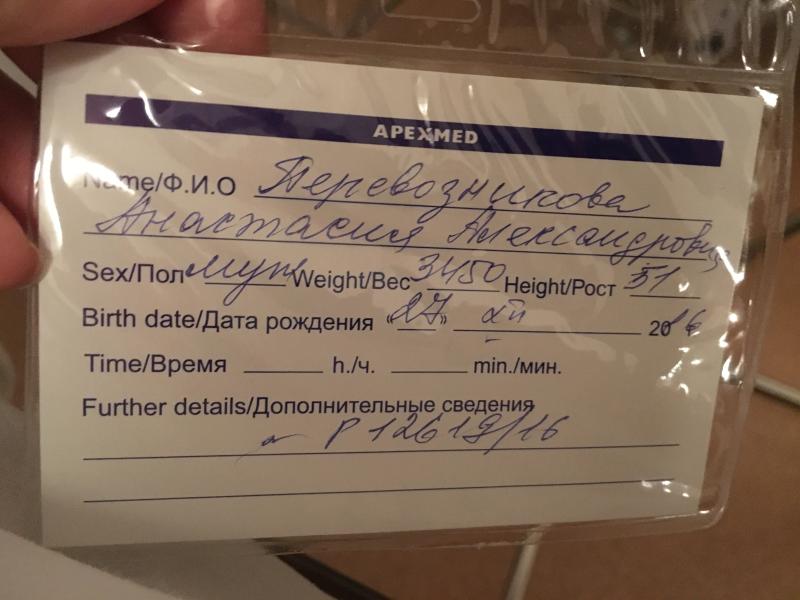 APEXMED
Name/Ф.И.О Перевозникова
Анастасия Александровна
Sex/Пол муж Weight/Вес 3450 Height/Рост 51
Birth date/Дата рождения «27» XII 2016
Time/Время h./ч. min./мин.
Further details/Дополнительные сведения
Р 12619/16